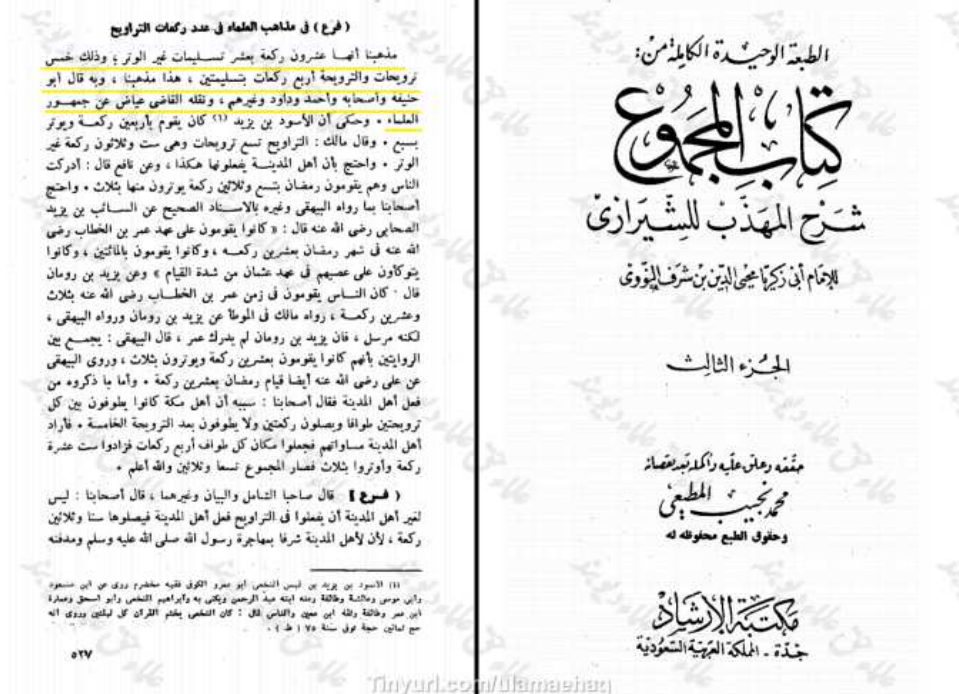 الطبعة الوحيدة الكاملة من:
كتاب المجموع
شرح المهذب للشيرازى
للإمام أبى زكريا محيى الدين بن شرف النووى
الجزء الثالث
حققه وعلق عليه وأكمله بعد نقصانه
محمد نجيب المطيعى
وحقوق الطبع محفوظه له
مكتبة الإرشاد
جدة - المملكة العربية السعودية
( فرع ) فى مذاهب العلماء فى عدد ركعات التراويح
مذهبنا أنها عشرون ركعة بعشر تسليمات غير الوتر ، وذلك خمس
ترويحات والترويحة أربع ركعات بتسليمتين ، هذا مذهبنا ، وبه قال أبو
حنيفة وأصحابه وأحمد وداود وغيرهم ، ونقله القاضى عياض عن جمهور
العلماء . وحكى أن الأسود بن يزيد (١) كان يقوم بأربعين ركعة ويوتر
بسبع . وقال مالك : التراويح تسع ترويحات وهى ست وثلاثون ركعة غير
الوتر . واحتج بأن أهل المدينة يفعلونها هكذا ، وعن نافع قال : أدركت
الناس وهم يقومون رمضان بتسع وثلاثين ركعة يوترون منها بثلاث . واحتج
أصحابنا بما رواه البيهقى وغيره بالاسناد الصحيح عن السائب بن يزيد
الصحابى رضى الله عنه قال : « كانوا يقومون على عهد عمر بن الخطاب رضى
الله عنه فى شهر رمضان بعشرين ركعة ، وكانوا يقومون بالمائتين ، وكانوا
يتوكأون على عصيهم فى عهد عثمان من شدة القيام » وعن يزيد بن رومان
قال : كان الناس يقومون فى زمن عمر بن الخطاب رضى الله عنه بثلاث
وعشرين ركعة ، رواه مالك فى الموطأ عن يزيد بن رومان ورواه البيهقى ،
لكنه مرسل ، فان يزيد بن رومان لم يدرك عمر ، قال البيهقى : يجمع بين
الروايتين بأنهم كانوا يقومون بعشرين ركعة ويوترون بثلاث ، وروى البيهقى
عن على رضى الله عنه أيضا قيام رمضان بعشرين ركعة . وأما ما ذكروه من
فعل أهل المدينة فقال أصحابنا : سببه أن أهل مكة كانوا يطوفون بين كل
ترويحتين طوافا ويصلون ركعتين ولا يطوفون بعد الترويحة الخامسة . فأراد
أهل المدينة مساواتهم فجعلوا مكان كل طواف أربع ركعات فزادوا ست عشرة
ركعة وأوتروا بثلاث فصار المجموع تسعا وثلاثين والله أعلم .
( فرع ) قال صاحبا الشامل والبيان وغيرهما ، قال أصحابنا : ليس
لغير أهل المدينة أن يفعلوا فى التراويح فعل أهل المدينة فيصلوها ستا وثلاثين
ركعة ، لأن لأهل المدينة شرفا بمهاجرة رسول الله صلى الله عليه وسلم ومدفنه
(١) الأسود بن يزيد بن قيس النخعى أبو عمرو الكوفى فقيه مخضرم روى عن ابن مسعود
وأبى موسى وعائشة وطائفة وعنه ابنه عبد الرحمن وأبو اسحق وعمارة
ابن عمر وطائفة وثقه ابن معين والناس قال : كان النخعى يختم القرآن كل ليلتين وروى أنه
حج ثمانين حجة توفى سنة ٧٥ ( ط ) .
٥٢٧
Tinyurl.com/ulamaehaq